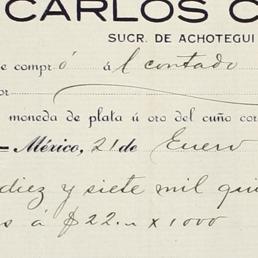 CARLOS C
SUCR. DE ACHOTEGUI
e compró ál contado
or
moneda de plata ú oro del cuño cor
México, 21 de Enero
diez y siete mil qui
s á $22.00 x 1000